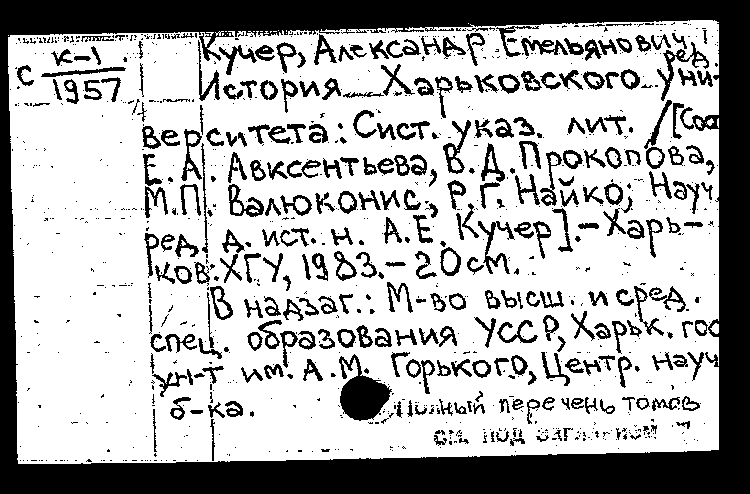 К-1
С 1957
Кучер, Александр Емельянович,
ред.
История Харьковского уни-
верситета: Сист. указ. лит. / [Сост.
Е. А. Авксентьева, В. Д. Прокопова,
М.П. Валюконис, Р.Г. Найко; Науч.
ред. д. ист. н. А.Е. Кучер].-Харь-
ков: ХГУ, 1983.-20см.
В надзаг.: М-во высш. и сред.
спец. образования УССР, Харьк. гос
ун-т им. А.М. Горького, Центр. науч
б-ка.
Полный перечень томов
см. под заглавием